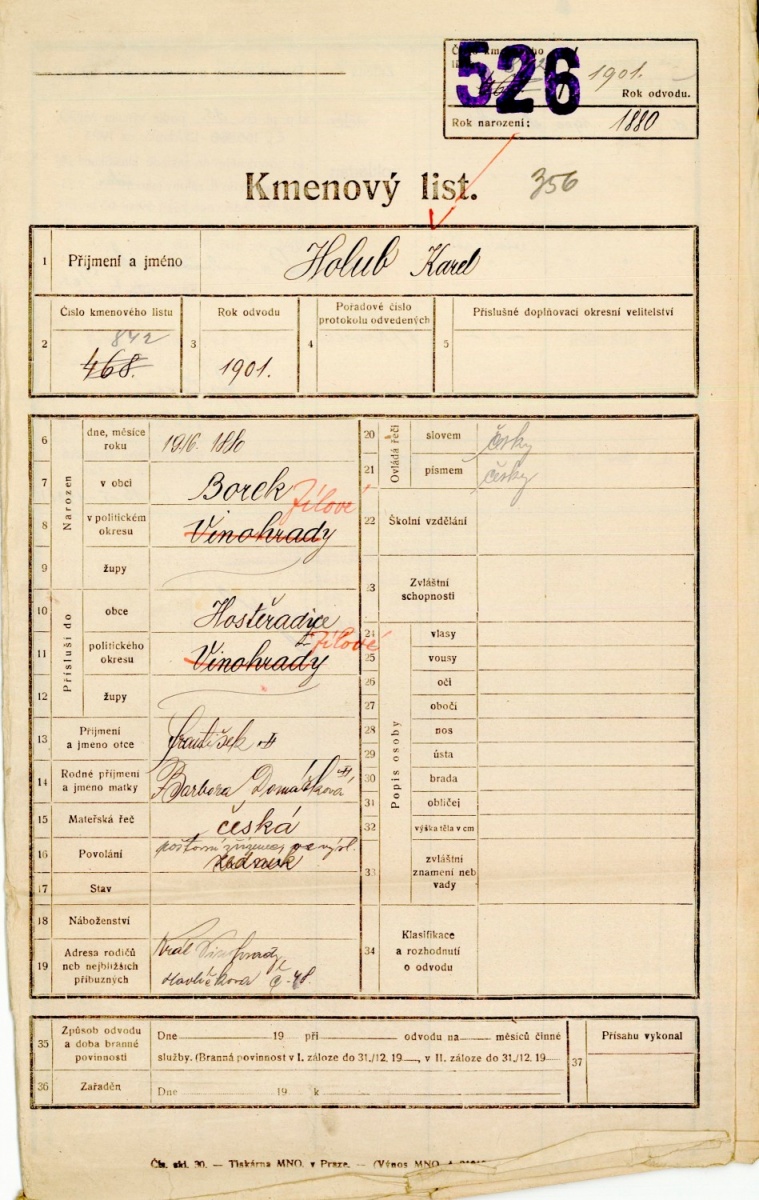 Číslo kmenového
526
1901.
Rok odvodu.
Rok narození: 1880
Kmenový list. 356
1 Příjmení a jméno Holub Karel
Číslo kmenového listu Rok odvodu Pořadové číslo protokolu odvedených Příslušné doplňovací okresní velitelství
842
2 468. 3 1901. 4 5
Narozen
6 dne, měsíce roku
7 v obci Borek
Jílové
8 v politickém okresu Vinohrady
9 župy
Přísluší do
10 obce Hostěradice
Jílové
11 politického okresu Vinohrady
12 župy
13 Příjmení a jmeno otce František
14 Rodné příjmení a jmeno matky Barbora Domášková
15 Mateřská řeč česká
16 Povolání poštovní zřízenec
zedník
17 Stav
18 Náboženství
19 Adresa rodičů neb nejbližších příbuzných Král Vinohrady
Havlíčkova č. 48.
Ovládá řeči
20 slovem česky
21 písmem česky
22 Školní vzdělání
23 Zvláštní schopnosti
Popis osoby
24 vlasy
25 vousy
26 oči
27 obočí
28 nos
29 ústa
30 brada
31 obličej
32 výška těla v cm
33 zvláštní znamení neb vady
34 Klasifikace a rozhodnutí o odvodu
35 Způsob odvodu a doba branné povinnosti
Dne 19 při odvodu na měsíců činné
služby. (Branná povinnost v I. záloze do 31./12. 19 , v II. záloze do 31./12. 19
36 Zařaděn Dne 19 k
37 Přísahu vykonal
Čís. skl. 30. — Tiskárna MNO. v Praze. — (Výnos MNO